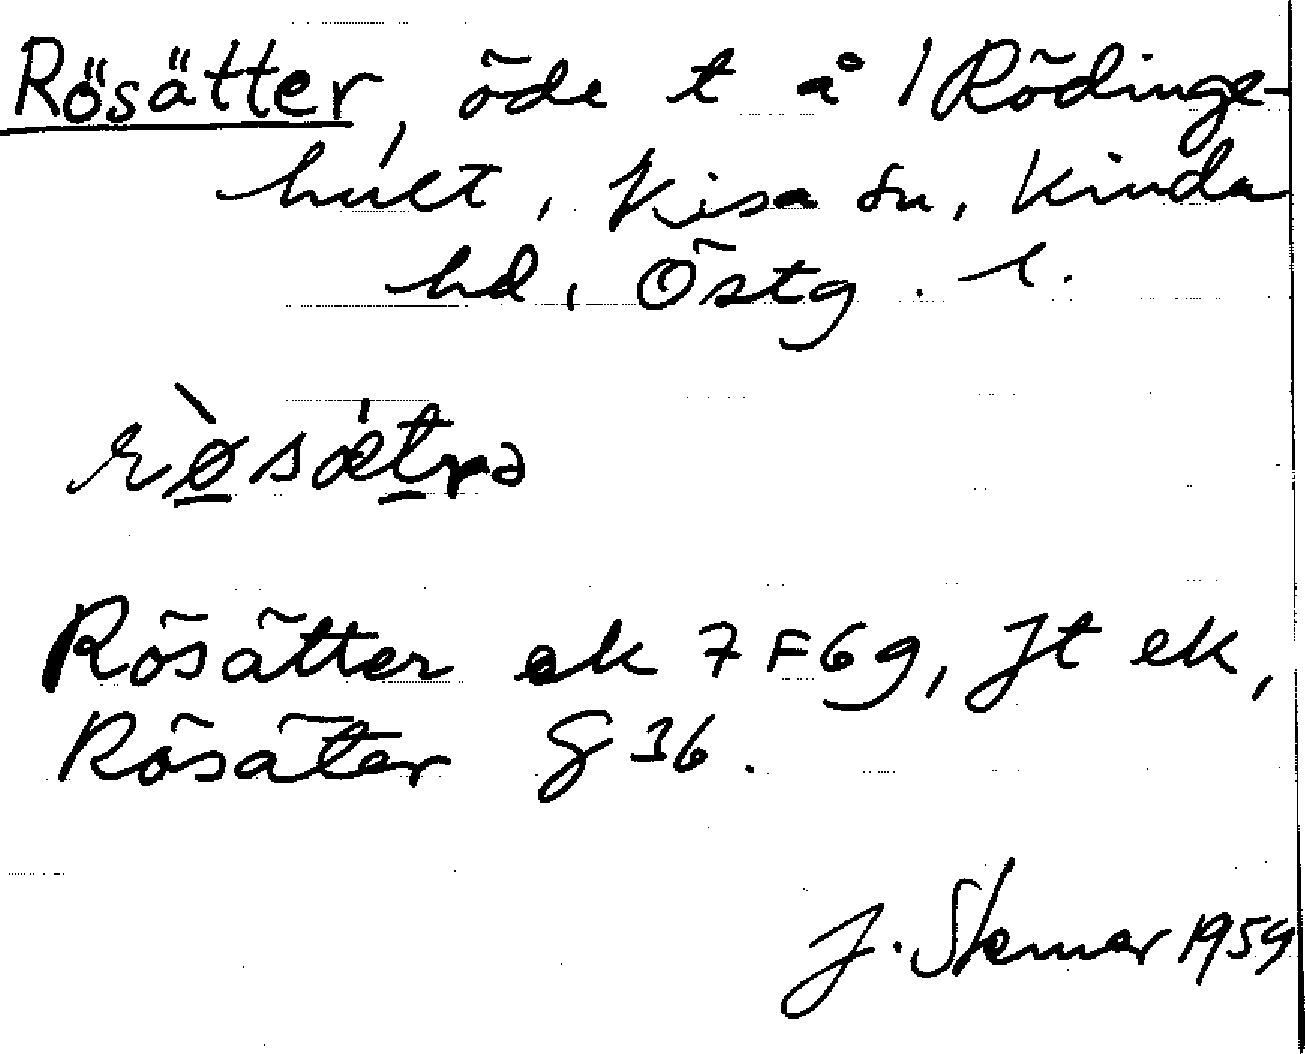 Rösätter, öde t å 1 Rödinge-
hult, Kisa sn, Kinda
hd, Östg. l.
rø̀sǽtrə
Rösätter ek 7 F 6 g, Jt ek,
Rösäter G 36.
J. Stemar 1959